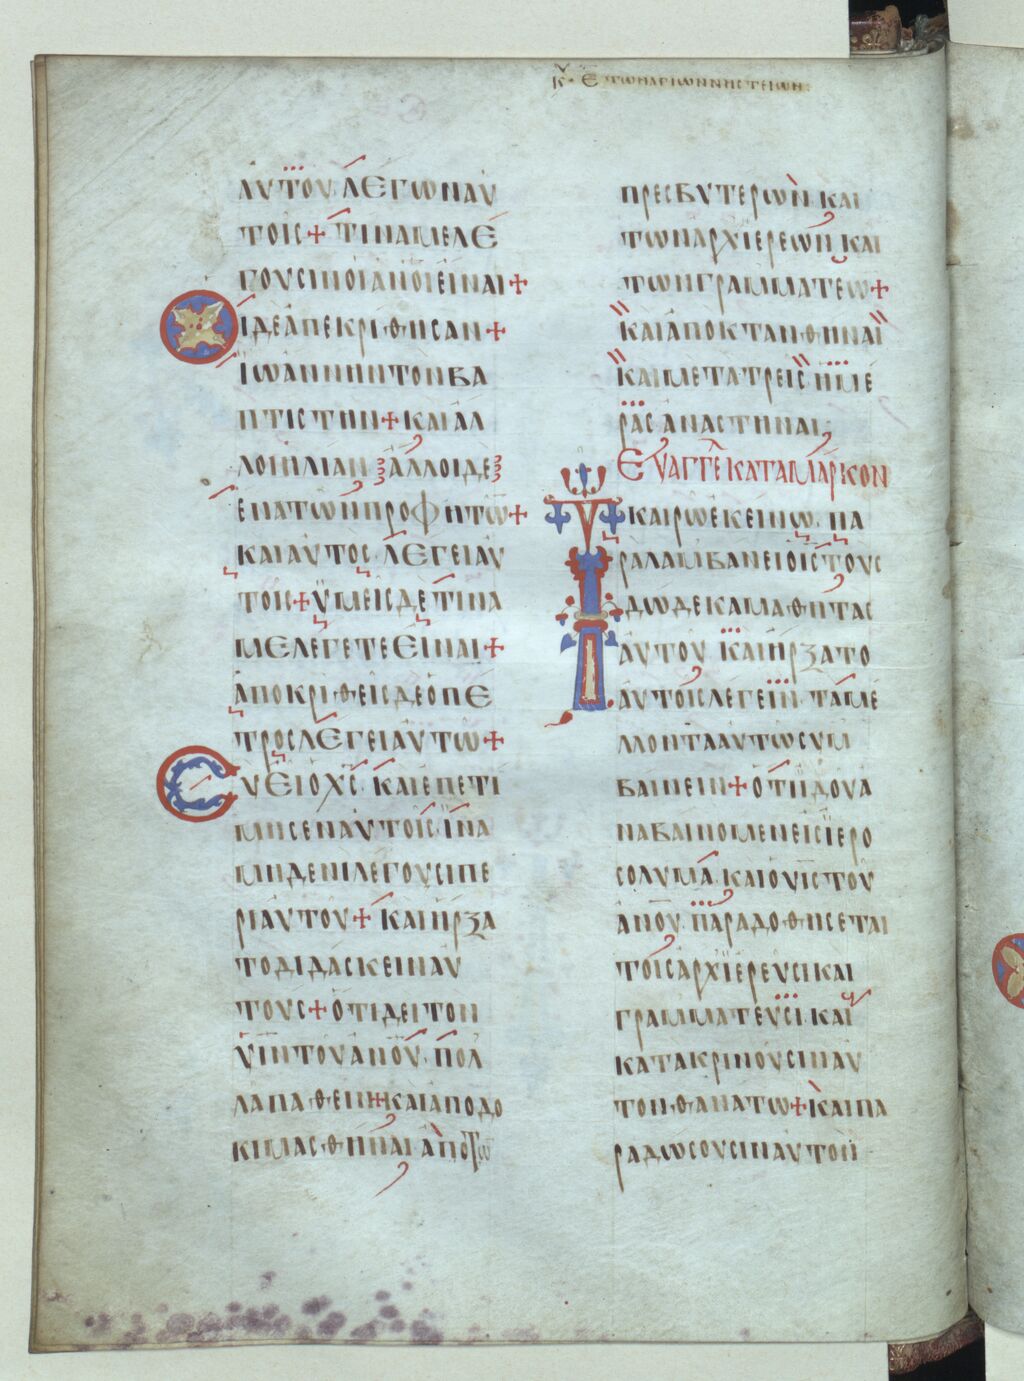 Κυ Ε ΤΩΝ ΑΓΙΩΝ ΝΗΣΤΕΙΩΝ
ΑΥΤΟΥ ΛΕΓΩΝ ΑΥ
ΤΟΙΣ + ΤΙΝΑ ΜΕ ΛΕ
ΓΟΥΣΙΝ ΟΙ ΑΝΟΙ ΕΙΝΑΙ +
ΟΙ ΔΕ ΑΠΕΚΡΙΘΗΣΑΝ +
ΙΩΑΝΝΗΝ ΤΟΝ ΒΑ
ΠΤΙΣΤΗΝ + ΚΑΙ ΑΛ
ΛΟΙ ΗΛΙΑΝ ΑΛΛΟΙ ΔΕ
ΕΝΑ ΤΩΝ ΠΡΟΦΗΤΩ̅ +
ΚΑΙ ΑΥΤΟΣ ΛΕΓΕΙ ΑΥ
ΤΟΙΣ + ΫΜΕΙΣ ΔΕ ΤΙΝΑ
ΜΕ ΛΕΓΕΤΕ ΕΙΝΑΙ +
ΑΠΟΚΡΙΘΕΙΣ ΔΕ Ο ΠΕ
ΤΡΟΣ ΛΕΓΕΙ ΑΥΤΩ +
ΣΥ ΕΙ Ο ΧΣ. ΚΑΙ ΕΠΕΤΙ
ΜΗΣΕΝ ΑΥΤΟΙΣ ΙΝΑ
ΜΗΔΕΝΙ ΛΕΓΟΥΣΙ ΠΕ
ΡΙ ΑΥΤΟΥ + ΚΑΙ ΗΡΞΑ
ΤΟ ΔΙΔΑΣΚΕΙΝ ΑΥ
ΤΟΥΣ + ΟΤΙ ΔΕΙ ΤΟΝ
ΥΙΝ ΤΟΥ ΑΝΟΥ. ΠΟΛ
ΛΑ ΠΑΘΕΙΝ + ΚΑΙ ΑΠΟΔΟ
ΚΙΜΑΣΘΗΝΑΙ ΑΠΟ ΤΩ̅
ΠΡΕΣΒΥΤΕΡΩΝ. ΚΑΙ
ΤΩΝ ΑΡΧΙΕΡΕΩΝ. ΚΑΙ
ΤΩΝ ΓΡΑΜΜΑΤΕΩ +
ΚΑΙ ΑΠΟΚΤΑΝΘΗΝΑΙ
ΚΑΙ ΜΕΤΑ ΤΡΕΙΣ ΗΜΕ
ΡΑΣ ΑΝΑΣΤΗΝΑΙ
ΕΥΑΓΓΕ ΚΑΤΑ ΜΑΡΚΟΝ
ΤΩ ΚΑΙΡΩ ΕΚΕΙΝΩ. ΠΑ
ΡΑΛΑΜΒΑΝΕΙ Ο ΙΣ ΤΟΥΣ
ΔΩΔΕΚΑ ΜΑΘΗΤΑΣ
ΑΥΤΟΥ. ΚΑΙ ΗΡΞΑΤΟ
ΑΥΤΟΙΣ ΛΕΓΕΙΝ. ΤΑ ΜΕ
ΛΛΟΝΤΑ ΑΥΤΩ ΣΥΜ
ΒΑΙΝΕΙΝ + ΟΤΙ ΙΔΟΥ Α
ΝΑΒΑΙΝΟΜΕΝ ΕΙΣ ΙΕΡΟ
ΣΟΛΥΜΑ. ΚΑΙ Ο ΥΙΣ ΤΟΥ
ΑΝΟΥ. ΠΑΡΑΔΟΘΗΣΕΤΑΙ
ΤΟΙΣ ΑΡΧΙΕΡΕΥΣΙ ΚΑΙ
ΓΡΑΜΜΑΤΕΥΣΙ. ΚΑΙ
ΚΑΤΑΚΡΙΝΟΥΣΙΝ ΑΥ
ΤΟΝ ΘΑΝΑΤΩ + ΚΑΙ ΠΑ
ΡΑΔΩΣΟΥΣΙΝ ΑΥΤΟΝ